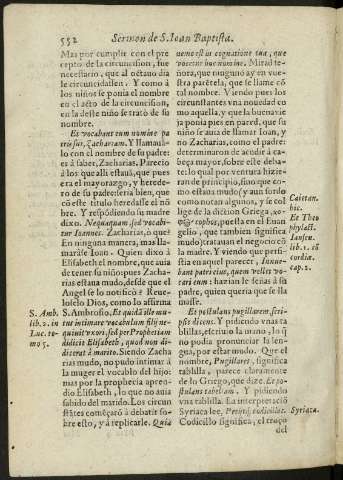 552 Sermon de S. Ioan Baptista.
Mas por cumplir con el pre
cepto de la circuncision, fue
necessario, que al octauo dia
le circuncidassen. Y como à
los niños se ponia el nombre
en el acto de la circuncision,
en la deste niño se trató de su
nombre.
Et vocabant eum nomine pa
tris sui, Zachariam. Y llamauã
lo con el nombre de su padre:
es à saber, Zacharias. Parecio
à los que alli estauã, que pues
era el mayorazgo, y herede-
ro de su padre: seria bien, que
cõ este titulo heredasse el nõ
bre. Y respõdiendo su madre
dixo. Nequaquam, sed vocabi-
tur Ioannes. Zacharias, ò que?
En ninguna manera, mas lla-
marâse Ioan. Quien dixo à
Elisabeth el nombre, que auia
de tener su niño: pues Zacha
rias estaua mudo, desde que el
Angel se lo notificó? Reue-
loselo Dios, como lo affirma
S. Ambrosio, Et quidã ille mu-
tus intimare vocabulum filij ne-
quiuit vxori, sed per Prophetiam
didicit Elisabeth, quod non di-
dicerat à marito. Siendo Zacha
rias mudo, no pudo intimar à
la muger el vocablo del hijo:
mas por la prophecia apren-
dio Elisabeth, lo que no auia
sabido del marido. Los circun
stãtes començarõ à debatir so-
bre esto, y à replicarle. Quia
S. Amb.
lib. 2. in
Luc. to-
mo 5.
nemo est in cognatione tua, que
vocetur hoc nomine. Mirad se-
ñora, que ninguno ay en vue-
stra parêtela, que se llame cõ
tal nombre. Viendo pues los
circunstantes vna nouedad co
mo aquella, y que la buena vie
ja ponia pies en pared, que su
niño se auia de llamar Ioan, y
no Zacharias, como el padre:
determinaron de acudir à ca-
beça mayor, sobre este deba-
te: lo qual por ventura hizie-
ran de principio, sino que co-
mo estaua mudo, y aun sordo
como notan algunos, y se col
lige de la diction Griega,
cophos, puesta en el Euan
gelio, que tambien significa
mudo) tratauan el negocio cõ
la madre. Y viendo que persi-
stia en aquel parecer, Innue-
bant patri eius, quem vellet vo-
cari eum: hazian le señas à su
padre, quien queria que se lla
masse.
Et postulans pugillarem, scri-
psit dicens. Y pidiendo vnas ta
blillas, escriuio la mano, lo q̃
no podia pronunciar la len-
gua, por estar mudo. Que el
nombre, Pugillares, significa
tablilla, parece claramente
de lo Griego, que dize. Et po-
stulans tabellam. Y pidiendo
vna tablilla. La interpretaciõ
Syriaca lee, Petijt, codicillos.
Codicillo significa, el troço
del
Caietan.
hic.
Et Theo
phylact.
Iansen.
lib. 1. cõ
cordiæ.
cap. 2.
Syriaca.